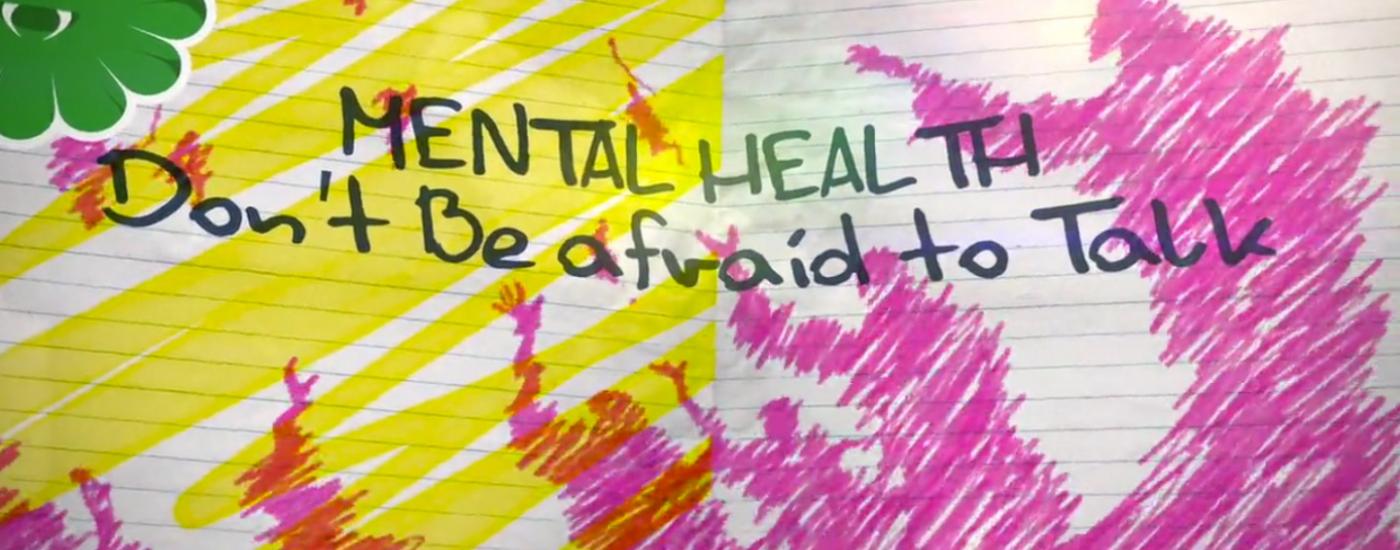 MENTAL HEALTH
Don't Be afraid to Talk